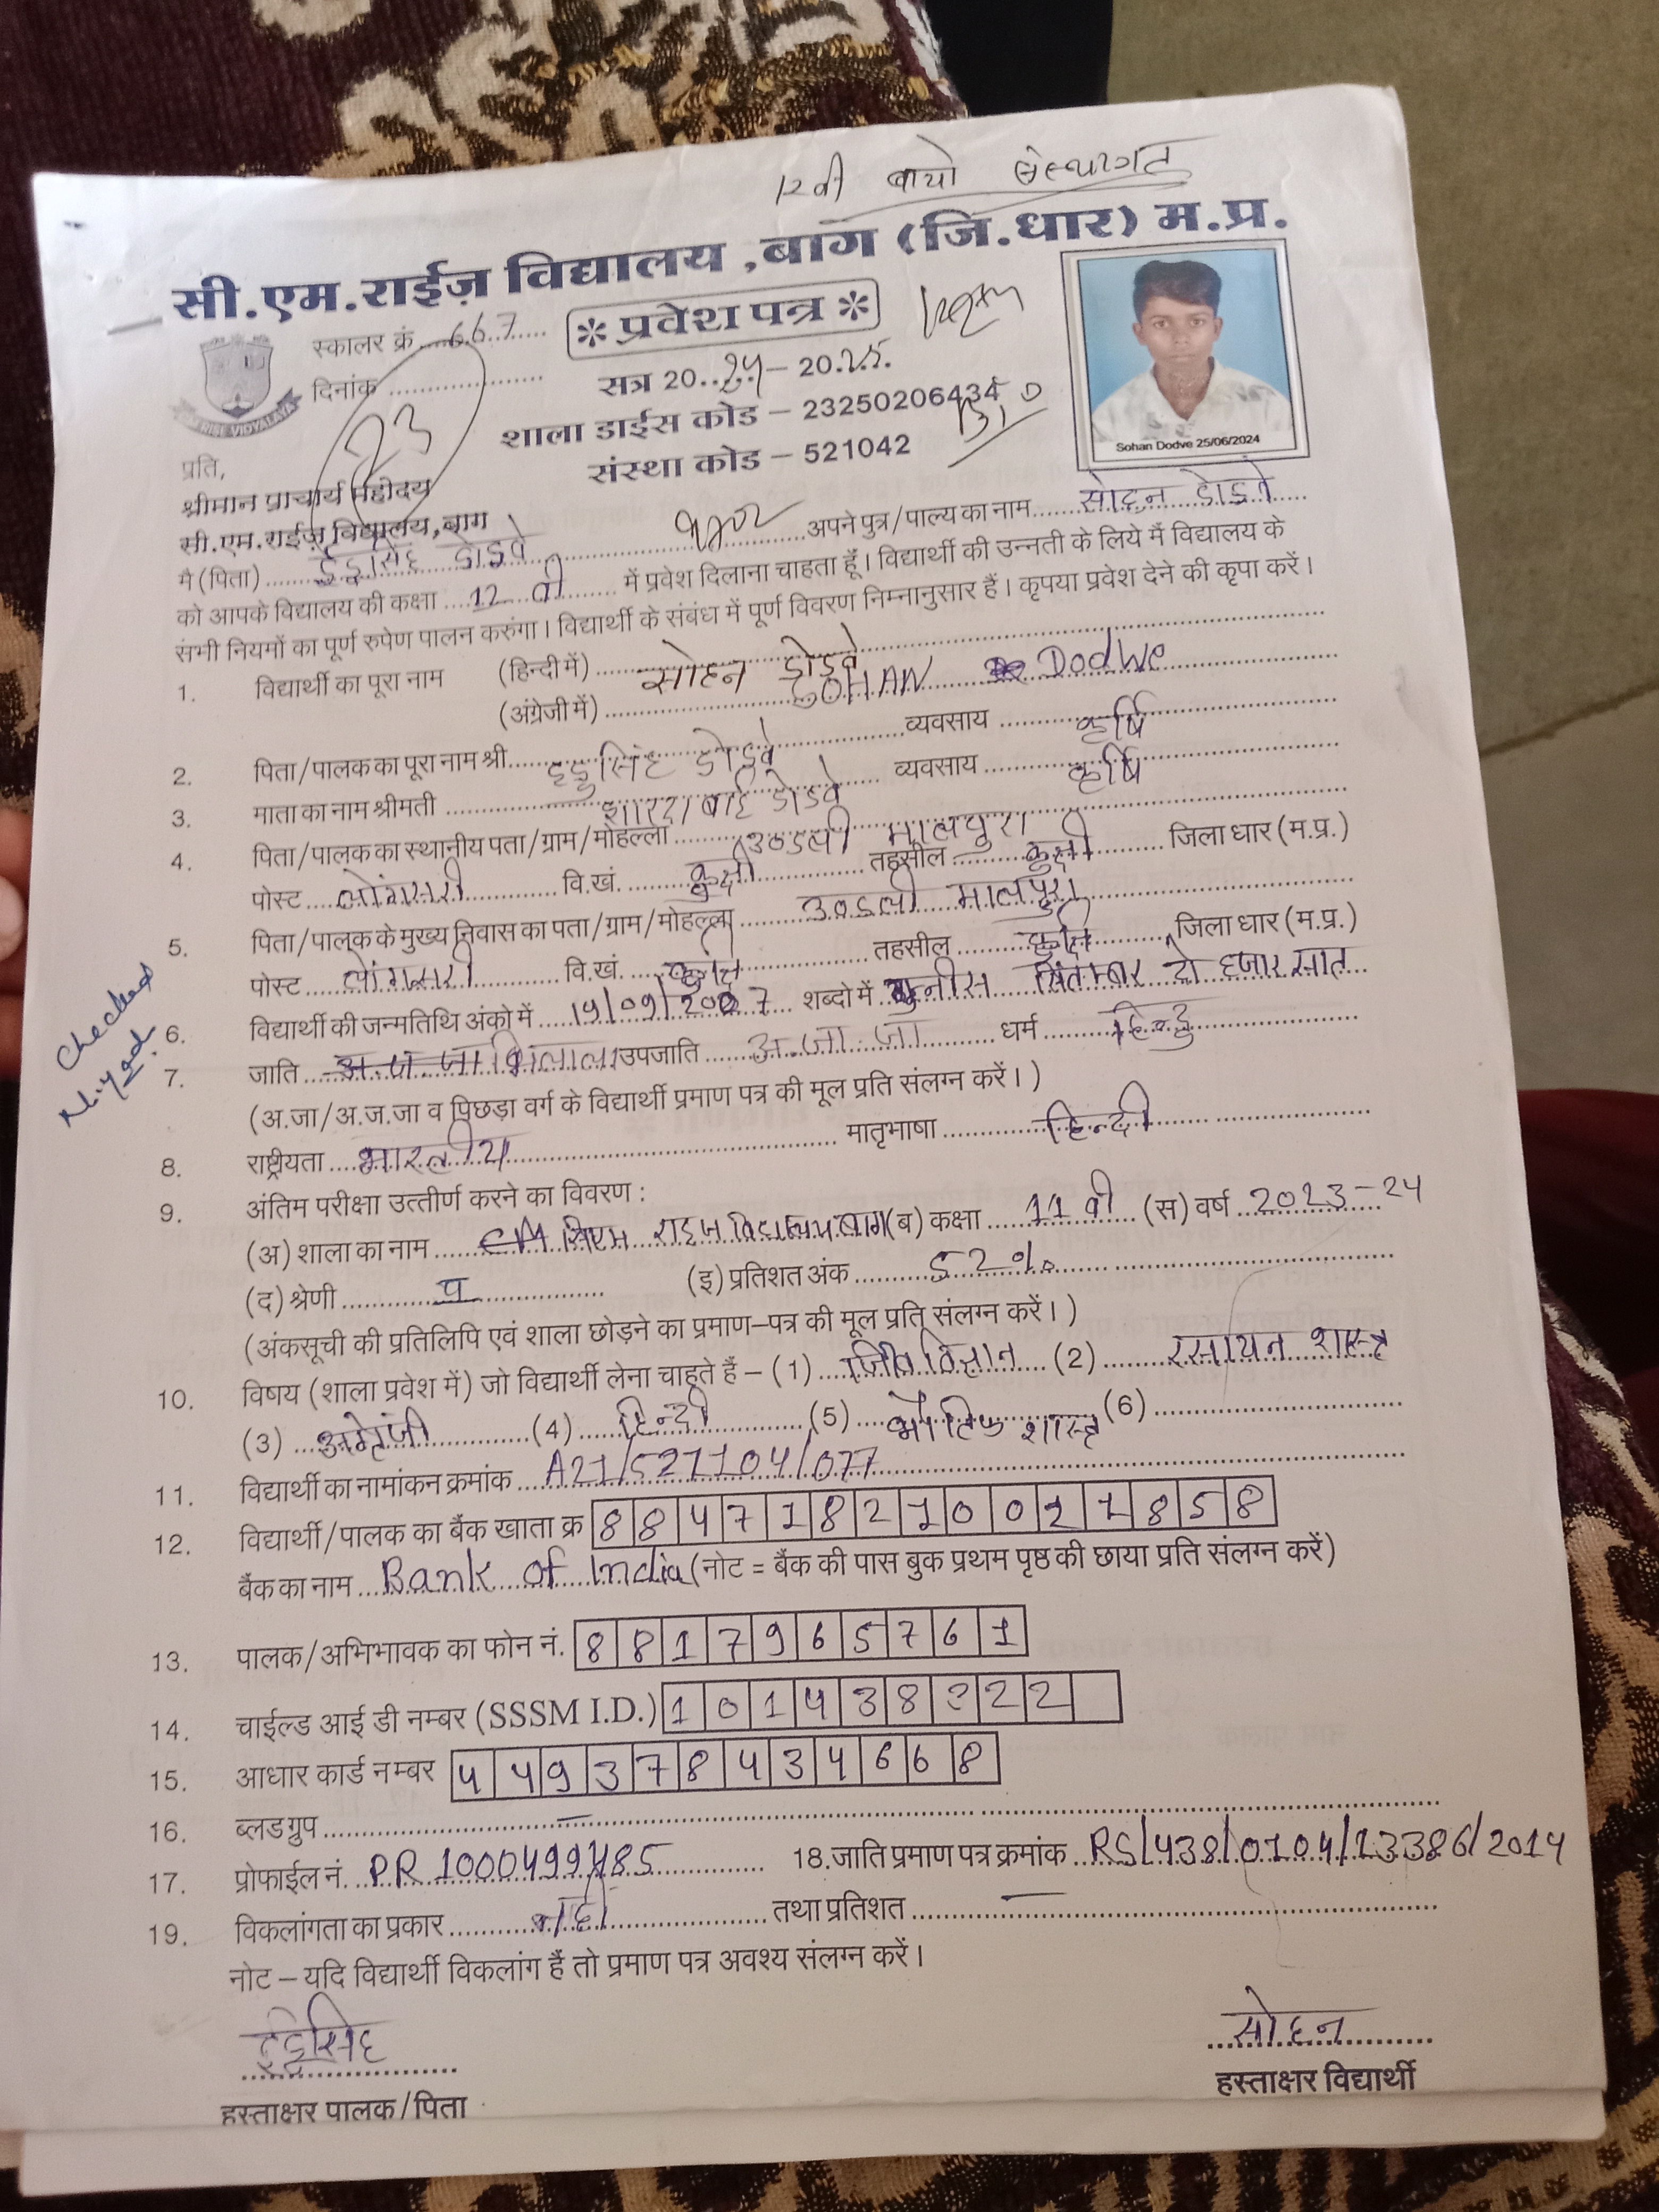 12वी बायो संस्थागत
सी.एम.राईज़ विद्यालय ,बाग (जि.धार) म.प्र.
स्कालर क्रं ....667.... * प्रवेश पत्र *
दिनांक .................... सत्र 20..24 – 20.25.
शाला डाईस कोड – 23250206434
संस्था कोड – 521042
RISE VIDYALAYA
23
Sohan Dodve 25/06/2024
प्रति,
श्रीमान प्राचार्य महोदय
सी.एम.राईज़ विद्यालय,बाग
मै (पिता) ....इडुसिंह डोडवे.... अपने पुत्र/पाल्य का नाम....सोहन डोडवे....
को आपके विद्यालय की कक्षा ....12 वी.... में प्रवेश दिलाना चाहता हूँ। विद्यार्थी की उन्नती के लिये मैं विद्यालय के
संभी नियमों का पूर्ण रुपेण पालन करुंगा। विद्यार्थी के संबंध में पूर्ण विवरण निम्नानुसार हैं। कृपया प्रवेश देने की कृपा करें।
1. विद्यार्थी का पूरा नाम (हिन्दी में) ....सोहन डोडवे....
(अंग्रेजी में) ....SOHAN Dodwe....
2. पिता/पालक का पूरा नाम श्री....इडुसिंह डोडवे.... व्यवसाय ....कर्षि....
3. माता का नाम श्रीमती ....शारदा बाई डोडवे.... व्यवसाय ....कर्षि....
4. पिता/पालक का स्थानीय पता/ग्राम/मोहल्ला ....उण्डली मालपुरा....
पोस्ट ....लोंगसरी.... वि.खं. ....कुक्षी.... तहसील ....कुक्षी.... जिला धार (म.प्र.)
5. पिता/पालक के मुख्य निवास का पता/ग्राम/मोहल्ला ....उण्डली मालपुरा....
पोस्ट ....लोंगसरी.... वि.खं. ....कुक्षी.... तहसील ....कुक्षी.... जिला धार (म.प्र.)
6. विद्यार्थी की जन्मतिथि अंको में ....19/09/2007.... शब्दो में उन्नीस सितम्बर दो हजार सात
7. जाति ....अ.ज.जा भिलाला उपजाति ....अ.जा.जा.... धर्म ....हिन्दु....
Checked
(अ.जा/अ.ज.जा व पिछड़ा वर्ग के विद्यार्थी प्रमाण पत्र की मूल प्रति संलग्न करें।)
8. राष्ट्रीयता ....भारतीय.... मातृभाषा ....हिन्दी....
9. अंतिम परीक्षा उत्तीर्ण करने का विवरण :
(अ) शाला का नाम ....सिएम राइज विद्यालय बाग (ब) कक्षा ....11 वी.... (स) वर्ष ..2023-24
(द) श्रेणी .................... (इ) प्रतिशत अंक ....52%....
(अंकसूची की प्रतिलिपि एवं शाला छोड़ने का प्रमाण–पत्र की मूल प्रति संलग्न करें।)
10. विषय (शाला प्रवेश में) जो विद्यार्थी लेना चाहते हैं – (1) ..जिव विज्ञान.... (2) ....रसायन शास्त्र
(3) ...अंग्रेजी.... (4) ....हिन्दी.... (5) ....भौतिक शास्त्र (6) ....................
11. विद्यार्थी का नामांकन क्रमांक ....A21/527104/077....
12. विद्यार्थी/पालक का बैंक खाता क्र 884718210011858
बैंक का नाम ....Bank of India (नोट = बैंक की पास बुक प्रथम पृष्ठ की छाया प्रति संलग्न करें)
13. पालक/अभिभावक का फोन नं. 8817965761
14. चाईल्ड आई डी नम्बर (SSSM I.D.) 101438222
15. आधार कार्ड नम्बर 449378434668
16. ब्लड ग्रुप ....–....
17. प्रोफाईल नं. ..PR1000499485.... 18.जाति प्रमाण पत्र क्रमांक ..RS/438/0104/13386/2014
19. विकलांगता का प्रकार ....नही.... तथा प्रतिशत ....–....
नोट – यदि विद्यार्थी विकलांग हैं तो प्रमाण पत्र अवश्य संलग्न करें।
इडुसिंह सोहन
हस्ताक्षर पालक/पिता हस्ताक्षर विद्यार्थी